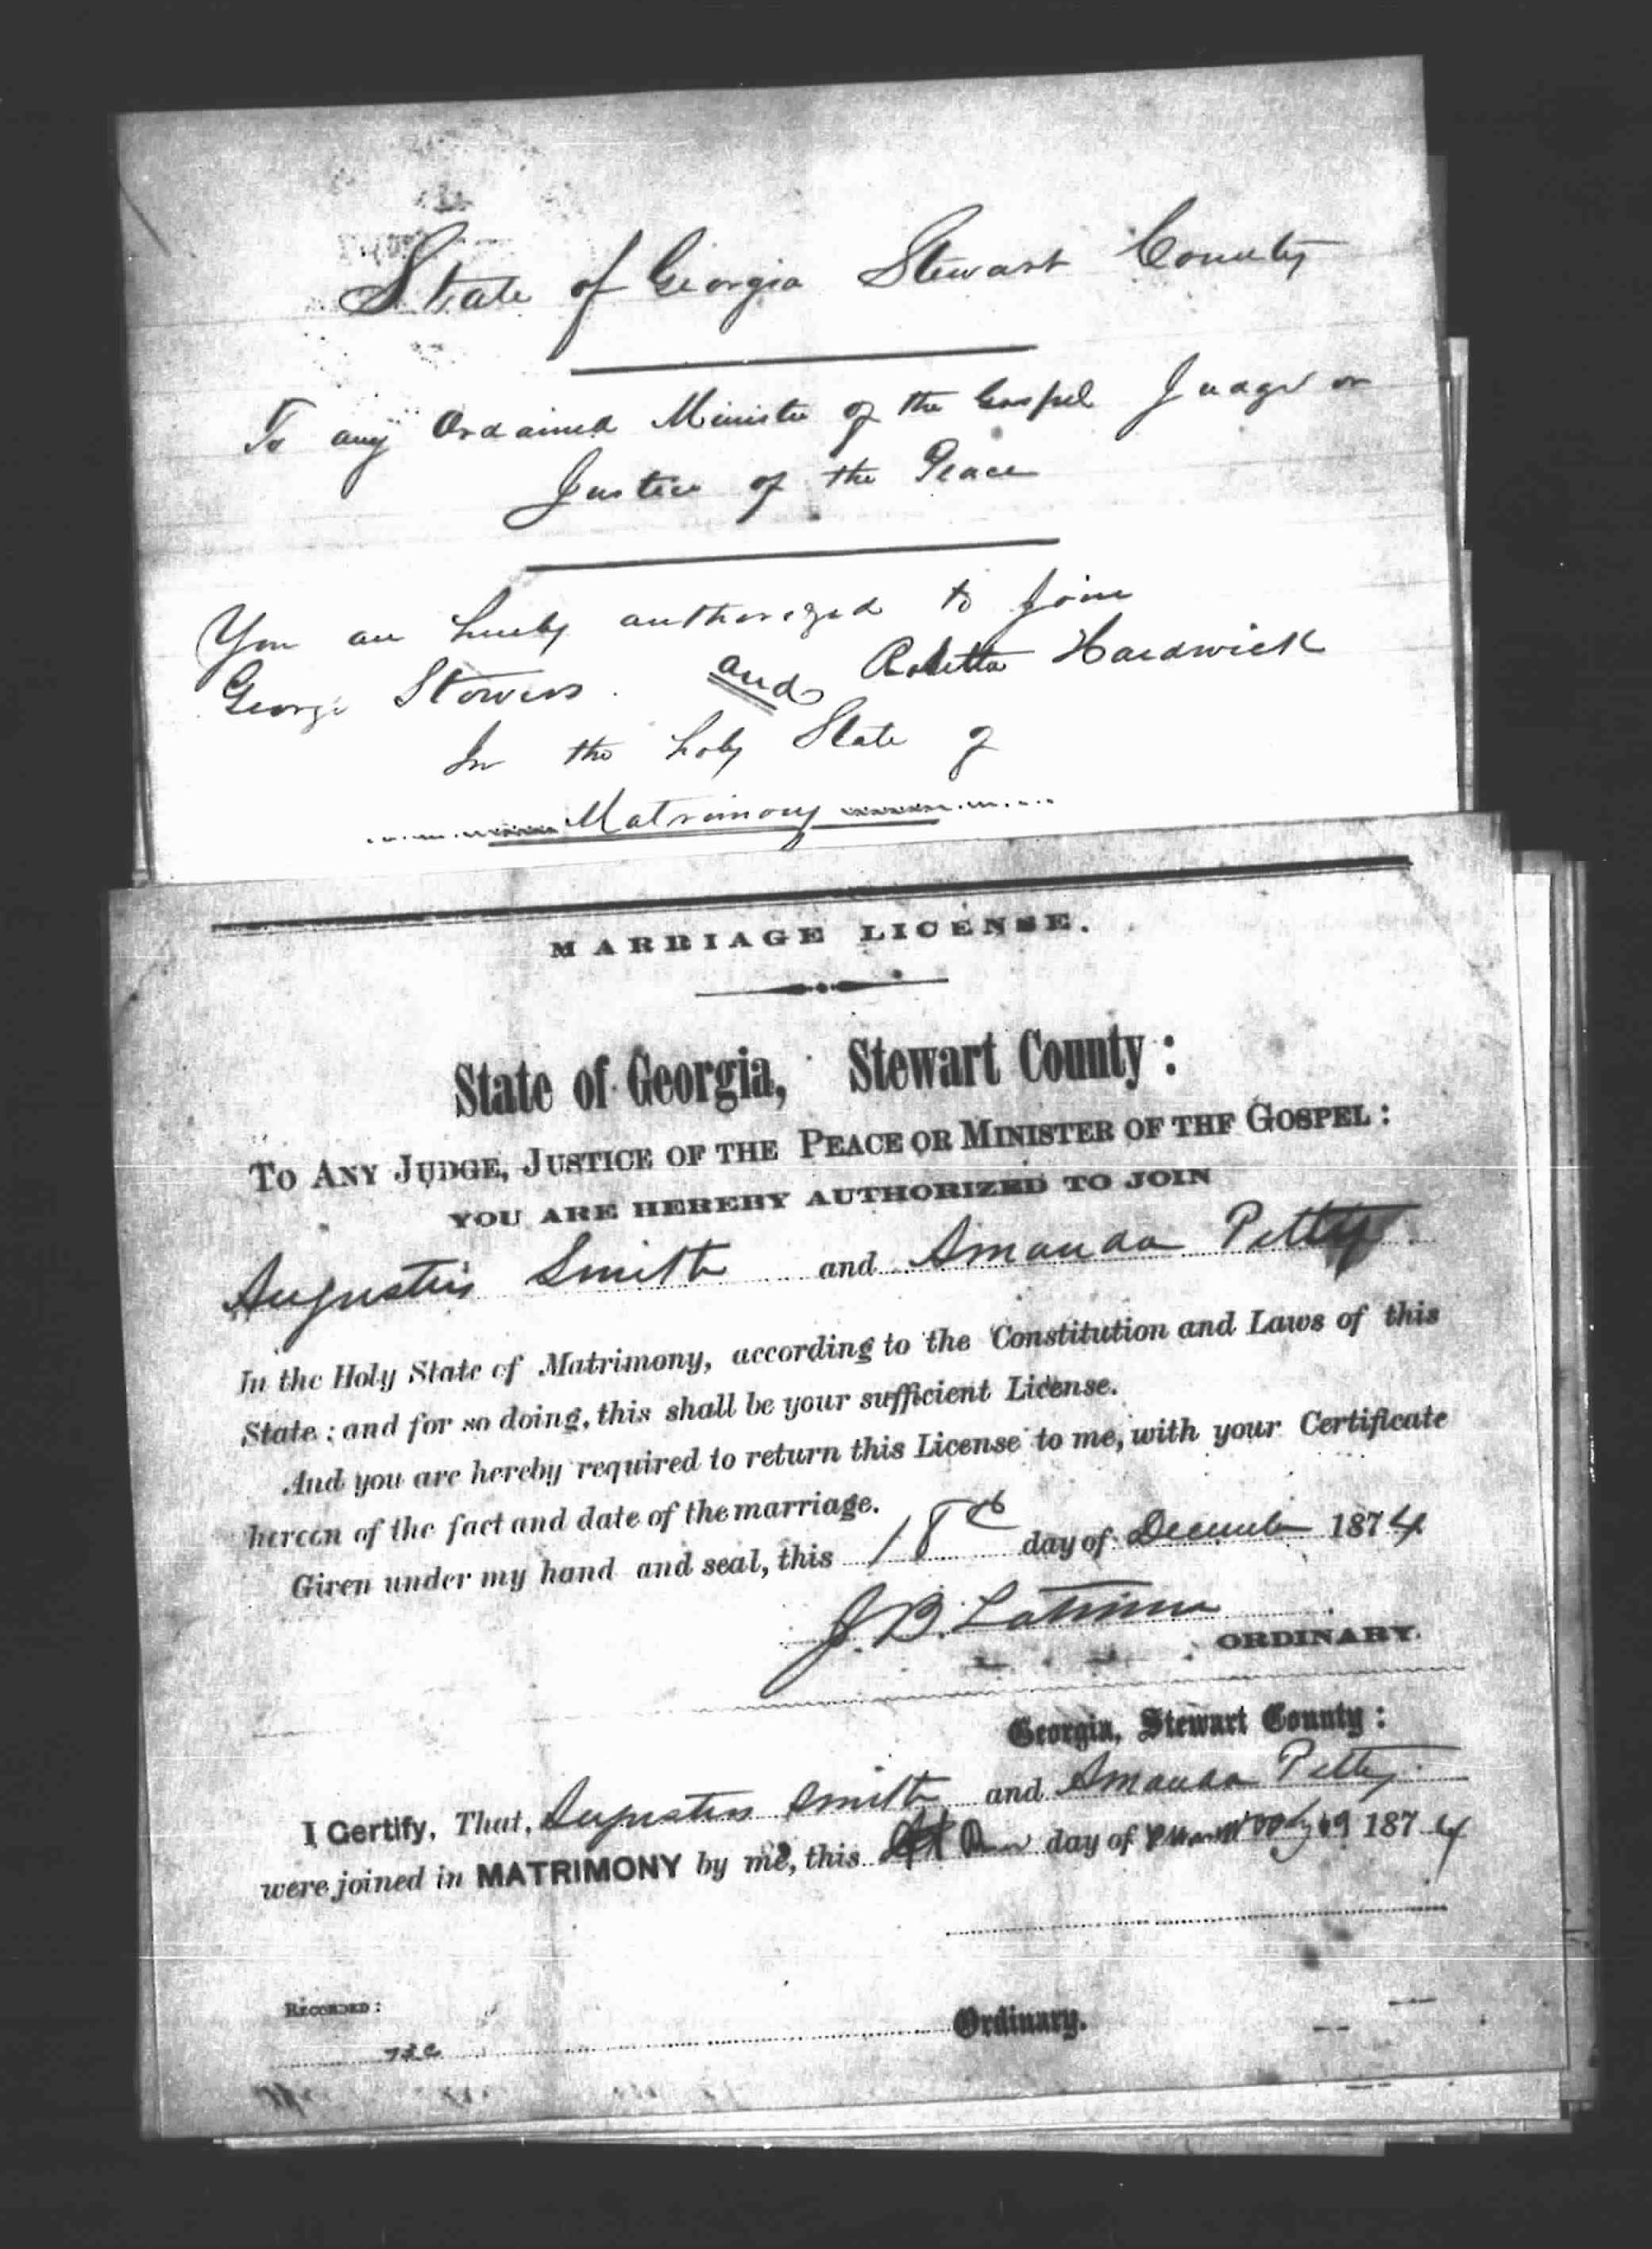 State of Georgia Stewart County
To any Ordained Minister of the Gospel Judge or
Justice of the Peace
You are hereby authorized to join
George Stowers and Hardwick
In the holy State of
Matrimony
MARRIAGE LICENSE.
State of Georgia, Stewart County:
TO ANY JUDGE, JUSTICE OF THE PEACE OR MINISTER OF THF GOSPEL:
YOU ARE HEREBY AUTHORIZED TO JOIN
Augustus Smith and Amanda Petty
In the Holy State of Matrimony, according to the Constitution and Laws of this
State; and for so doing, this shall be your sufficient License.
And you are hereby required to return this License to me, with your Certificate
hereon of the fact and date of the marriage.
Given under my hand and seal, this 18th day of December 1874
J. B. Latimer
ORDINARY.
Georgia, Stewart County:
I Certify, That, Augustus Smith and Amanda Petty
were joined in MATRIMONY by me, this day of 1874
RECORDED:
Ordinary.